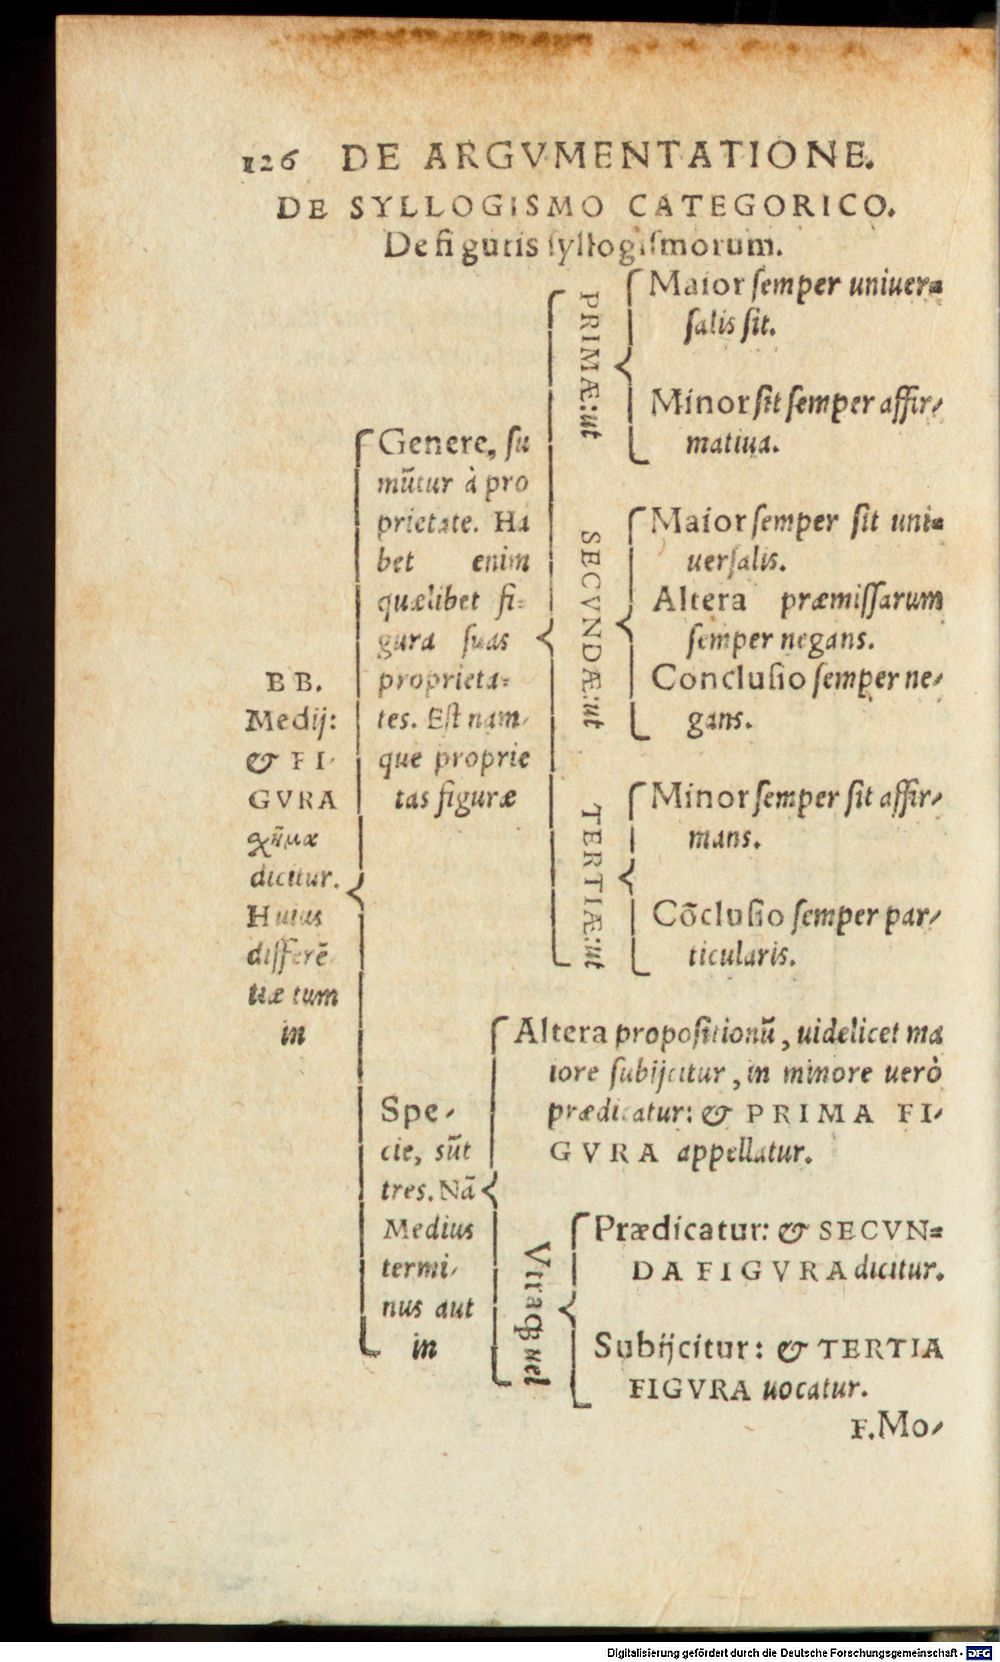 126 DE ARGVMENTATIONE.
DE SYLLOGISMO CATEGORICO.
De figuris syllogismorum.
BB.
Medij:
& FI-
GVRA
σχῆμα
dicitur.
Huius
differẽ-
tiæ tum
in
Genere, su
mũtur à pro
prietate. Ha
bet enim
quælibet fi-
gura suas
proprieta-
tes. Est nam-
que proprie
tas figuræ
PRIMÆ: ut
Maior semper uniuer-
salis sit.
Minor sit semper affir-
matiua.
SECVNDÆ: ut
Maior semper sit uni-
uersalis.
Altera præmissarum
semper negans.
Conclusio semper ne-
gans.
TERTIÆ: ut
Minor semper sit affir-
mans.
Cõclusio semper par-
ticularis.
Spe-
cie, sũt
tres. Nã
Medius
termi-
nus aut
in
Altera propositionũ, uidelicet ma
iore subijcitur, in minore uerò
prædicatur: & PRIMA FI-
GVRA appellatur.
Vtraqꝫ uel
Prædicatur: & SECVN-
DA FIGVRA dicitur.
Subijcitur: & TERTIA
FIGVRA uocatur.
F. Mo-
Digitalisierung gefördert durch die Deutsche Forschungsgemeinschaft - DFG